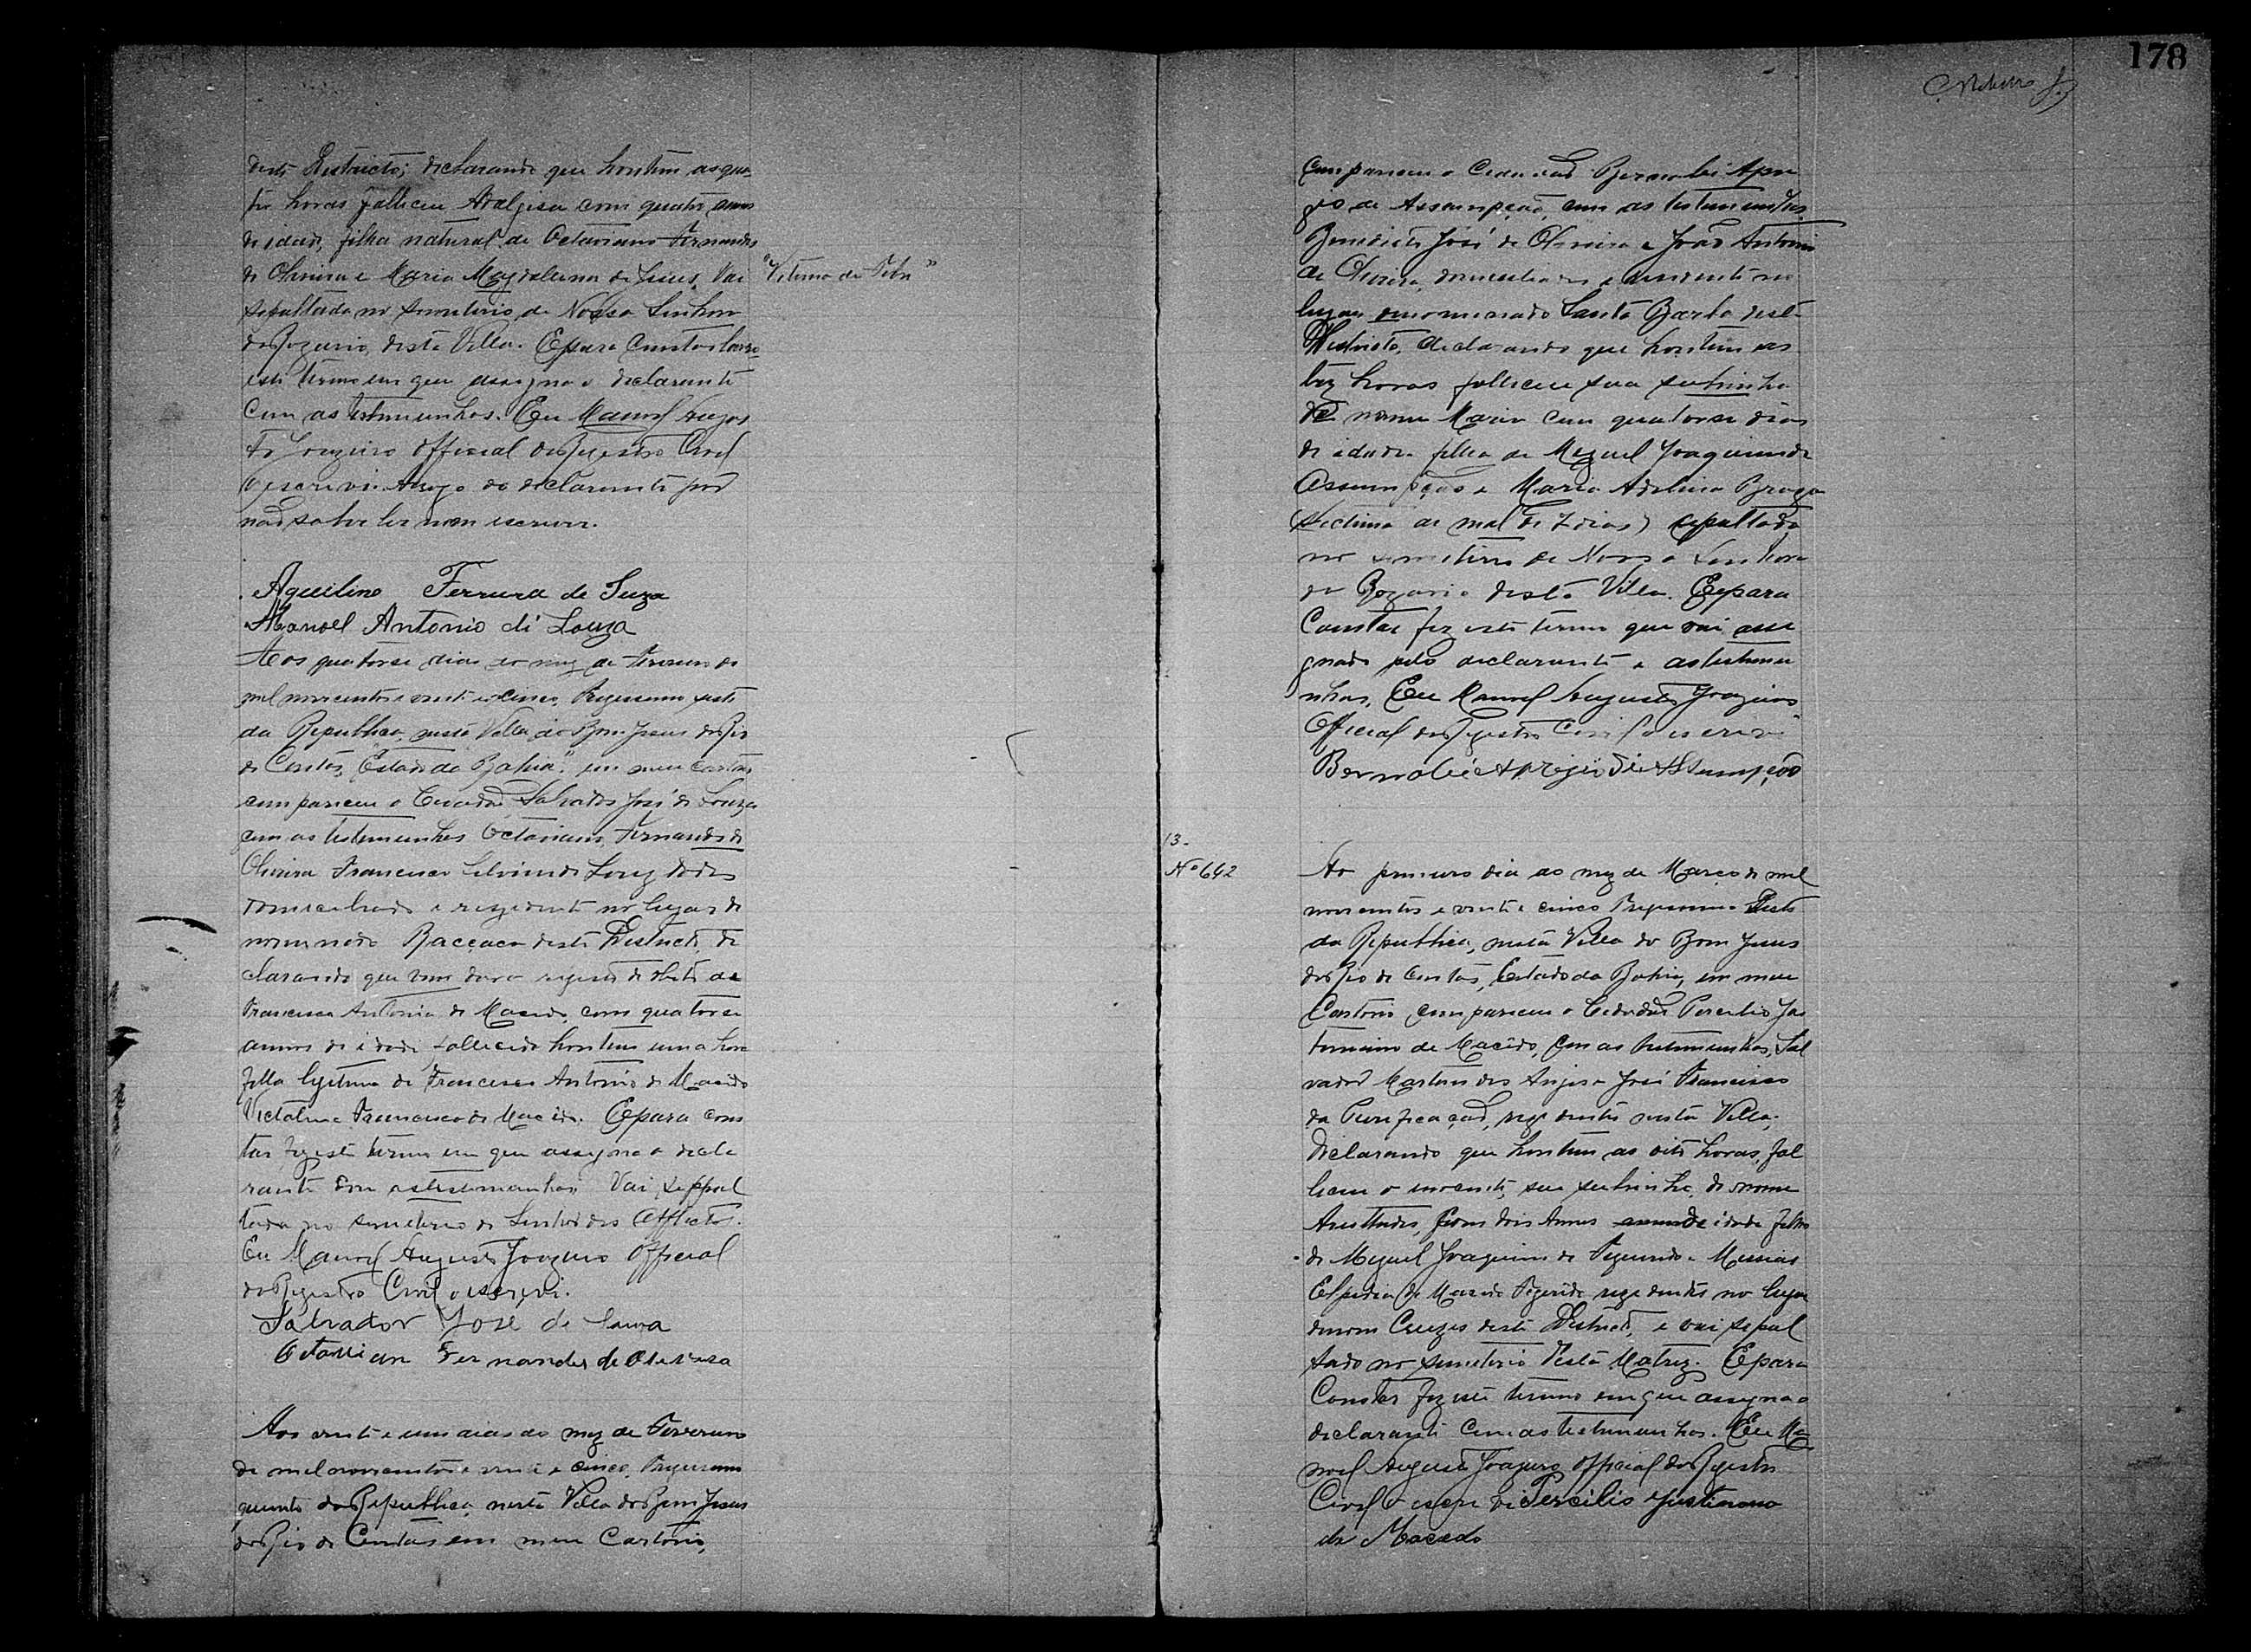 deste Districto; declarando que hontem as qua-
tro horas falleceu Adalgisa com quatro annos
de idade, filha natural de Octaviano Fernandes
de Oliveira e Maria Magdallena de Jesus, Vai
"Vitima de Febre"
sepultada no semiterio de Nossa Senhora
do Rozario, desta Villa. E para constar lavro
este termo em que assigna o declarante
com as testemunhas. Eu Manoel Augus
to Joazeiro Official do Registro Civil
o escrevi. A rogo do declarante por
não saber ler nem escrever.
Aquilino Ferrura de Suza
Manoel Antonio di Louza
Aos quatorse dias do mez de Fevereiro de
mil novecentos e vinte e cinco, Trigessimo sesto
da Republica, nesta Villa do Bom Jesus do Rio
de Contas, "Estado da Bahia", em meu Cartorio
compareceu o Cidadão Salvador José de Souza
com as testemunhas Octaviano Fernandes de
Oliveira Francisco de Souz todos
domiciliado e rezidente no lugar de
nominado Baccaca deste Districto, de
clarando que vem dar o registro de obito de
Francisca Antonia de Macedo, com quatorse
annos de idade fallecida hontem uma hora
filla legitima de Francisco Antonio de Macedo
Victalina Francisca de Macedo. E para cons
tar fiz este termo em que assigna o decla
rante com as testemunhas Vai seppul
tada no semeterio do Senhor dos Afflictos.
Eu Manoel Augusto Joazeiro Official
do Registro Civil o escrevi.
Salvador José de Souza
Octavian Fernandes de Oliveira
Aos vinte e um dias do mez de Fevereiro
de mil novecentos e vinte e cinco, Trigessimo
quinto da Republica, nesta Villa do Bom Jesus
do Rio de Contas em meu Cartorio,
178
compareceu o Cidadão Bernabé Apri
gio de Assumpção, com as testemunhas
Benedicto José de Oliveira e João Antonio
de Oliveira, domiciliados e residente no
lugar denominado Santa Barba deste
Districto, declarando que hontem as
trez horas falleceu sua sobrinha
de nome Maria com quatorse dias
de idade filha de Miguel Joaquim de
Assumpção e Maria Adelina Braga
(Victima de mal de 7 dias) sepultada
no semiterio de Nossa Senhora
do Rozario desta Villa. E para
Constar fiz este termo que vai assi
gnado pelo declarante e as testemu
nhas, Eu Manoel Augusto Joazeiro
Official do Registro Civil o escrevi
Bernabé Aprigio de Assumpção
13.
Nº 642
Ao primeiro dia do mez de Março de mil
novecentos e vinte e cinco Trigessimo Sesto
da Republica, nesta Villa do Bom Jesus
do Rio de Contas, Estado da Bahia, em meu
Cartorio compareceu o Cidadão Percilio Jus
tiniano de Macêdo, com as testemunhas, Sal
vador Martins dos Anjos e José Francisco
da Purificação, rezidentes nesta Villa,
declarando que hontem as oito horas, fal
leceu o inocente, seu sobrinho de nome
Aristides, com dois annos de idade filho
de Miguel Joaquim de Figueredo e Messias
Elpidia de Macedo Figerêdo rezidentes no lugar
denom Cruzes deste Districto, e vai sepul
tado no semiterio desta Matriz. E para
Constar fiz este termo em que assigna o
declarante com as testemunhas. Eu Ma
noel Augusto Joazeiro Official do Registro
Civil o escrevi Percilio Justiniano
de Macedo